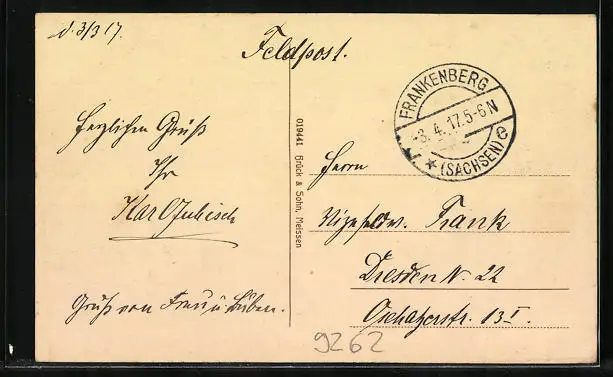 d. 3/3 17.
Feldpost.
FRANKENBERG
-3.4.17.5-6N
(SACHSEN) e
Herzlichen Gruß
Ihr
Karl
Gruß von Frau u Buben.
019441 Brück & Sohn, Meissen
Herrn
Vizefeldw. Frank
Dresden N. 22
Oschatzerstr. 13 I.
9262